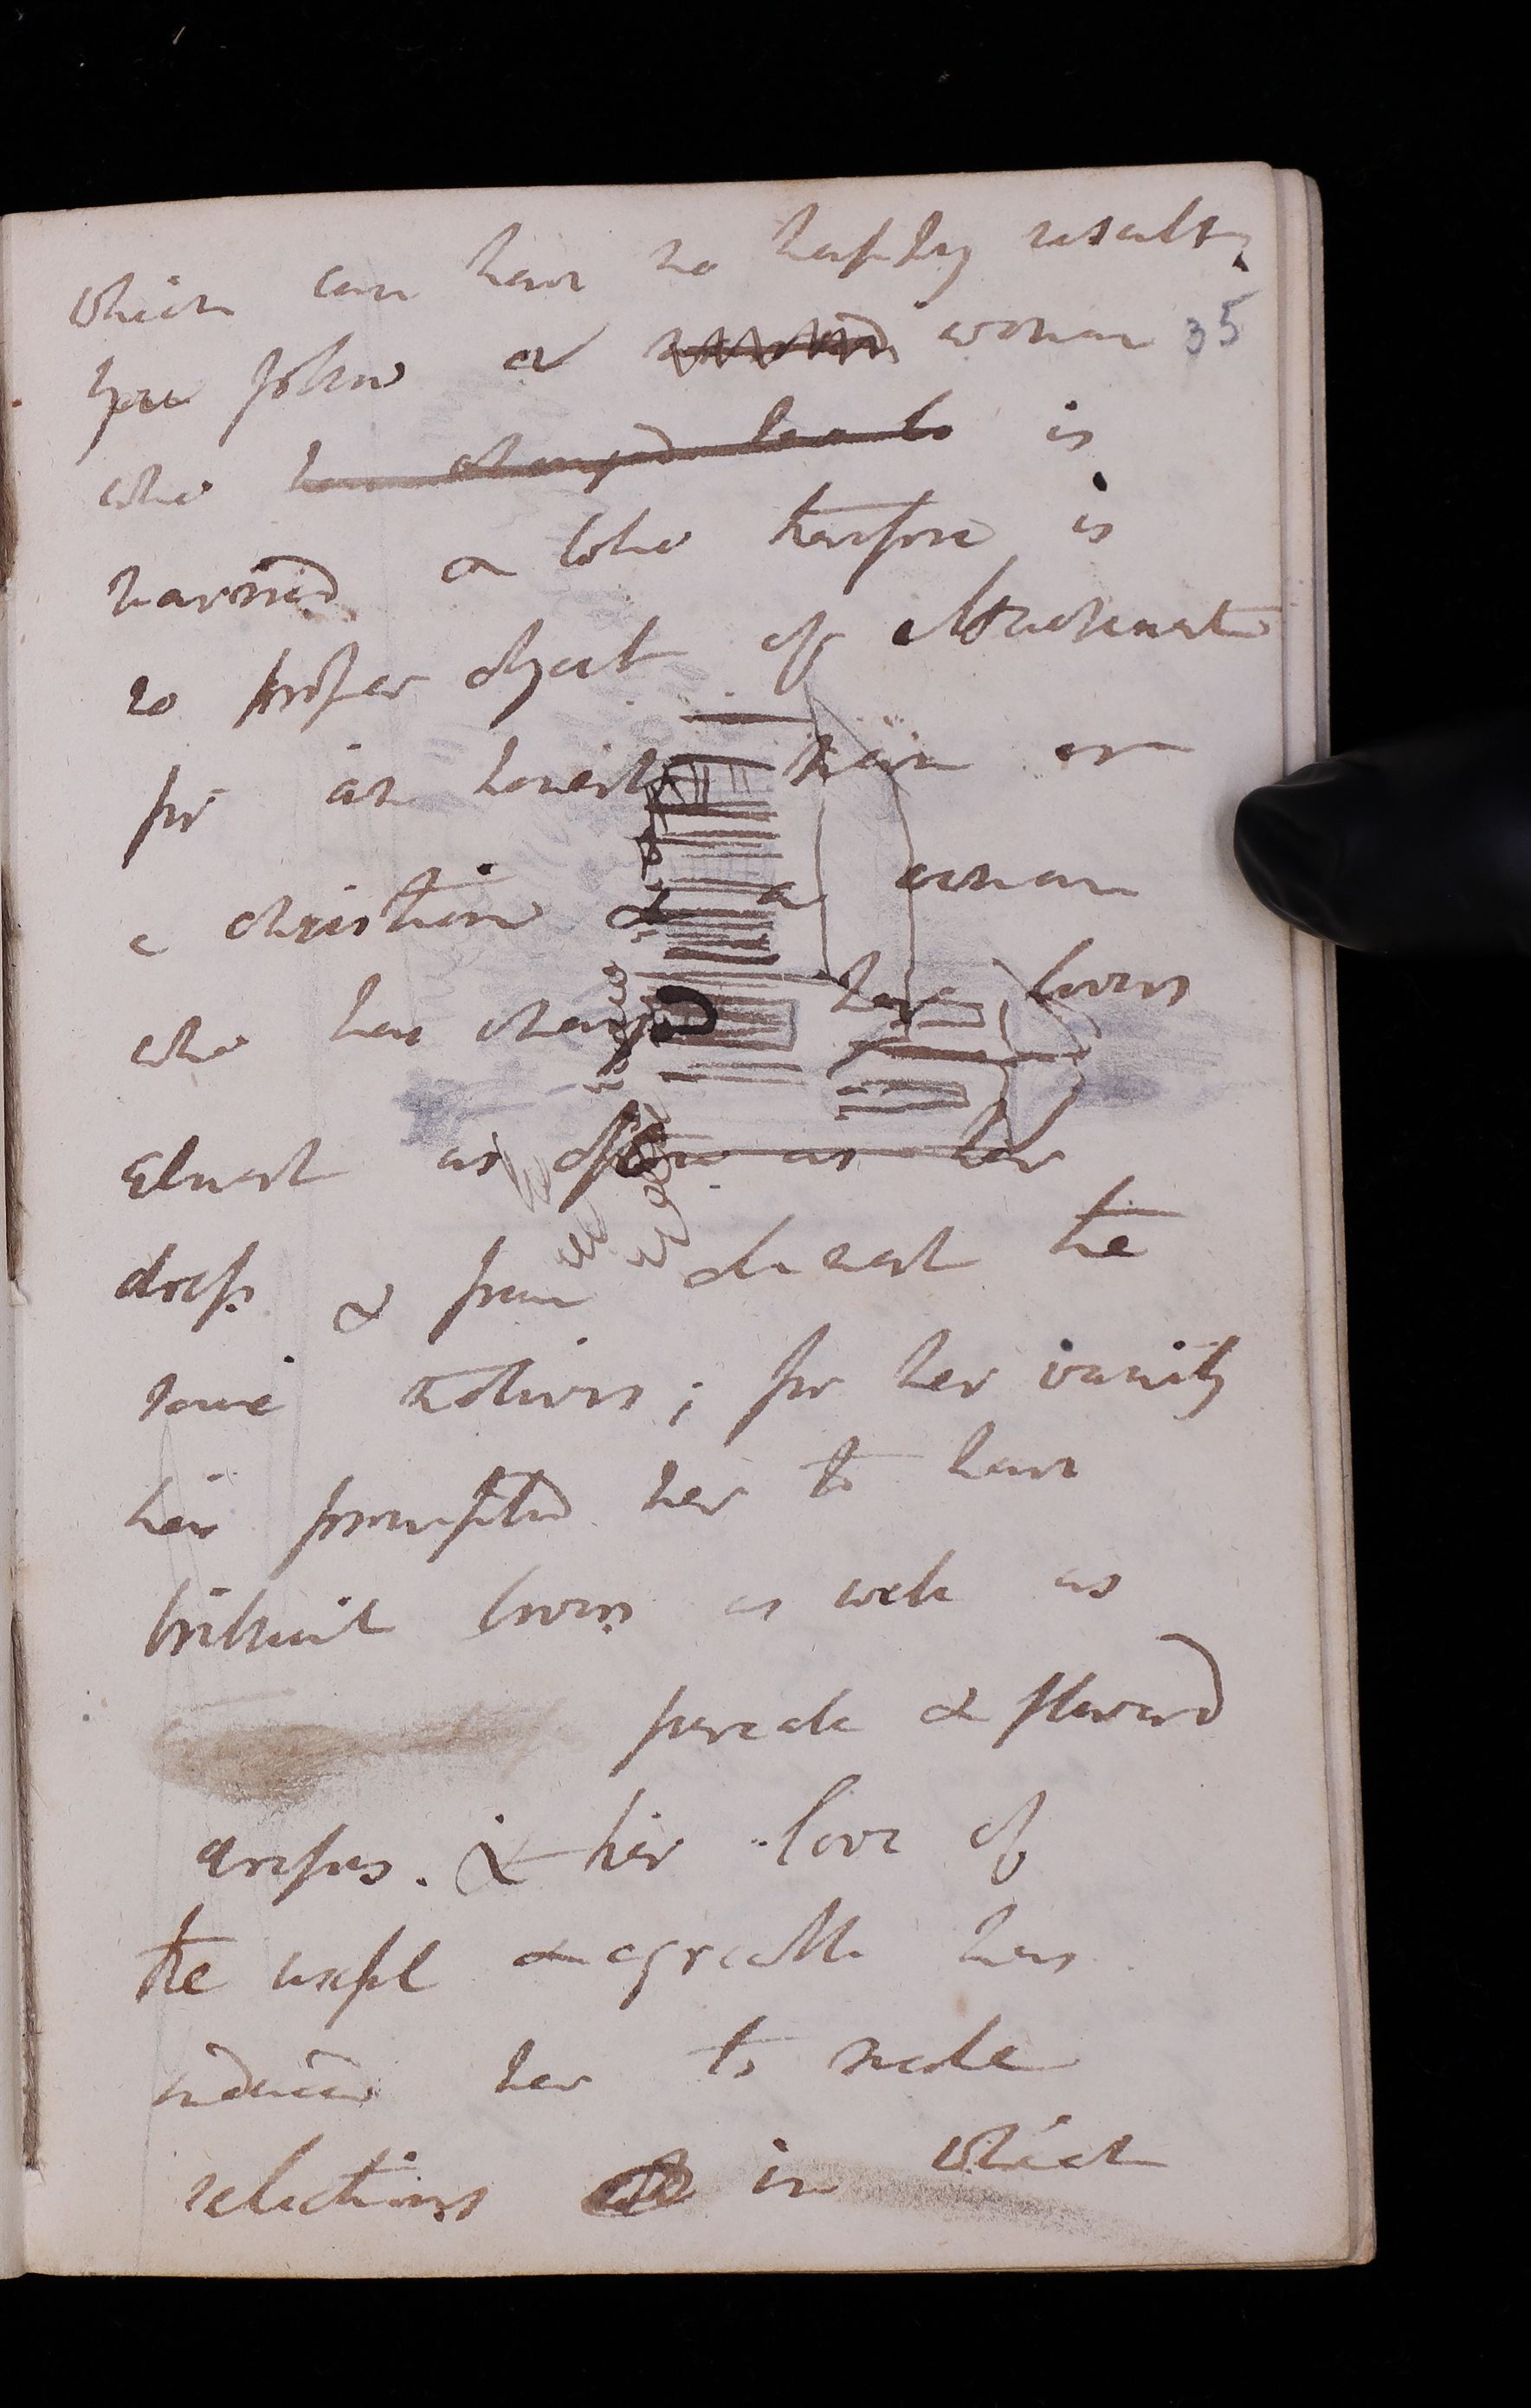 which can have no happy result;
you follow a woman 35
who has changed her lo is
married & who therefore is
no proper object of attachment
for an honest man or
a christian & a woman
who has changed her lovers
almost as often as her
dress & from almost the
same motives; for her vanity
has prompted her to have
brilliant lovers as well as
& flowered
dresses. & her love of
the useful & agreeable has
induced her to make
selections in which